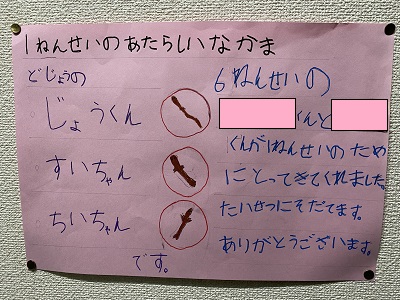 1ねんせいのあたらしいなかま
どじょうの
じょうくん
すいちゃん
ちいちゃん
です。
6ねんせいの
くんと
くんが1ねんせいのため
にとってきてくれました。
たいせつにそだてます。
ありがとうございます。